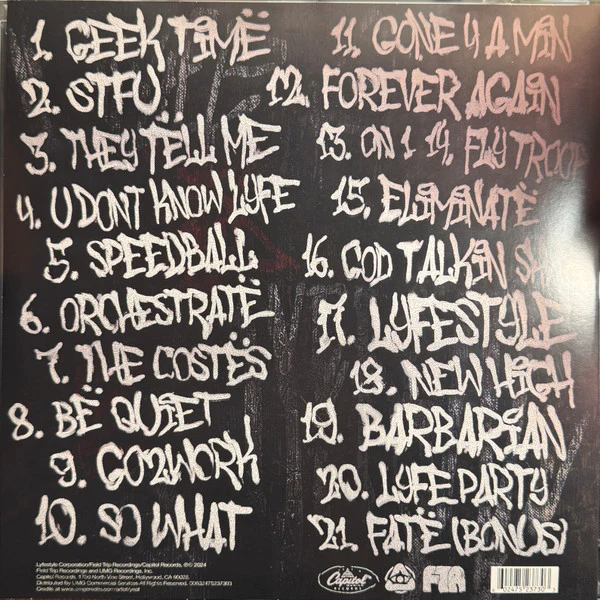 1. GEEK TIMË
2. STFU
3. THEY TËLL ME
4. U DONT KNOW LYFE
5. SPEEDBALL
6. ORCHESTRATË
7. THE COSTËS
8. BË QUIET
9. GO2WORK
10. SO WHAT
11. GONE 4 A MIN
12. FOREVER AGAIN
13. ON 1 14. FLY TROOP
15. ELIMINATË
16. GOD TALKIN
17. LYFESTYLE
18. NEW HIGH
19. BARBARIAN
20. LYFE PARTY
21. FATË (BONUS)
Lyfestyle Corporation/Field Trip Recordings/Capitol Records, ℗© 2024
Field Trip Recordings and UMG Recordings, Inc.
Capitol Records, 1750 North Vine Street, Hollywood, CA 90028.
Distributed by UMG Commercial Services All Rights Reserved.
Capitol
RECORDS
FTR